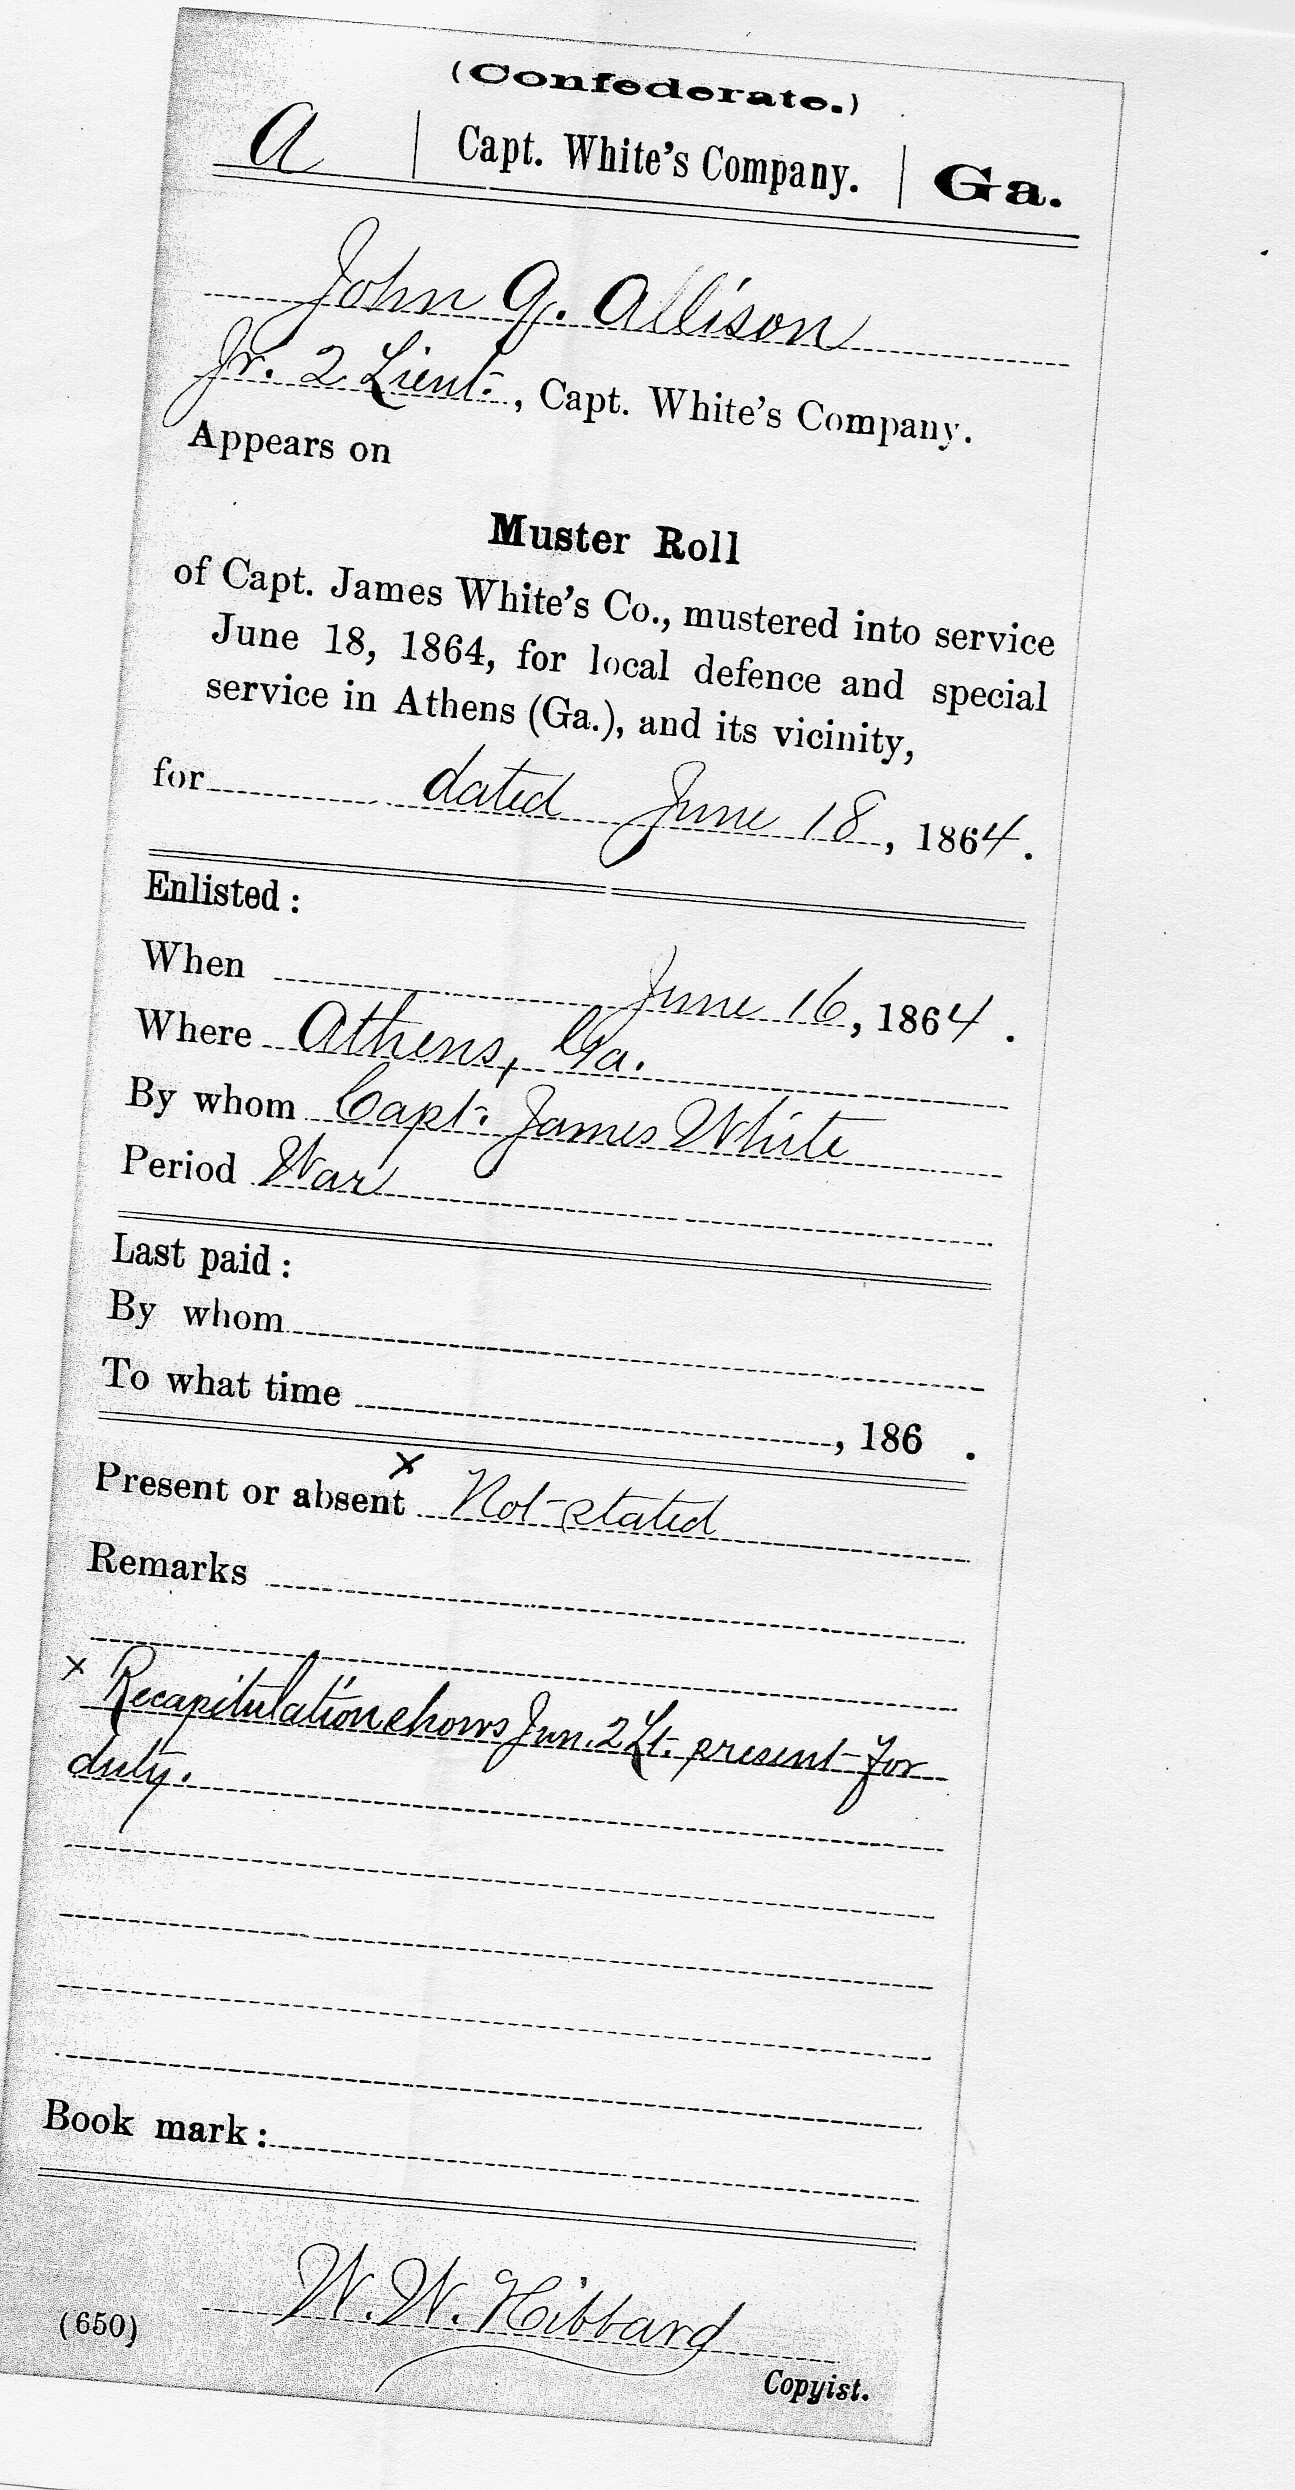 (Confederate.)
A | Capt. White's Company. | Ga.
John G. Allison
Jr. 2 Lieut., Capt. White's Company.
Appears on
Muster Roll
of Capt. James White's Co., mustered into service
June 18, 1864, for local defence and special
service in Athens (Ga.), and its vicinity,
for dated June 18, 1864.
Enlisted:
When June 16, 1864.
Where Athens, Ga.
By whom Capt. James White
Period War
Last paid:
By whom
To what time , 186 .
Present or absent x Not stated
Remarks
x Recapitulation shows Jun. 2 Lt. present for
duty.
Book mark:
W. W. Hibbard
(650)
Copyist.